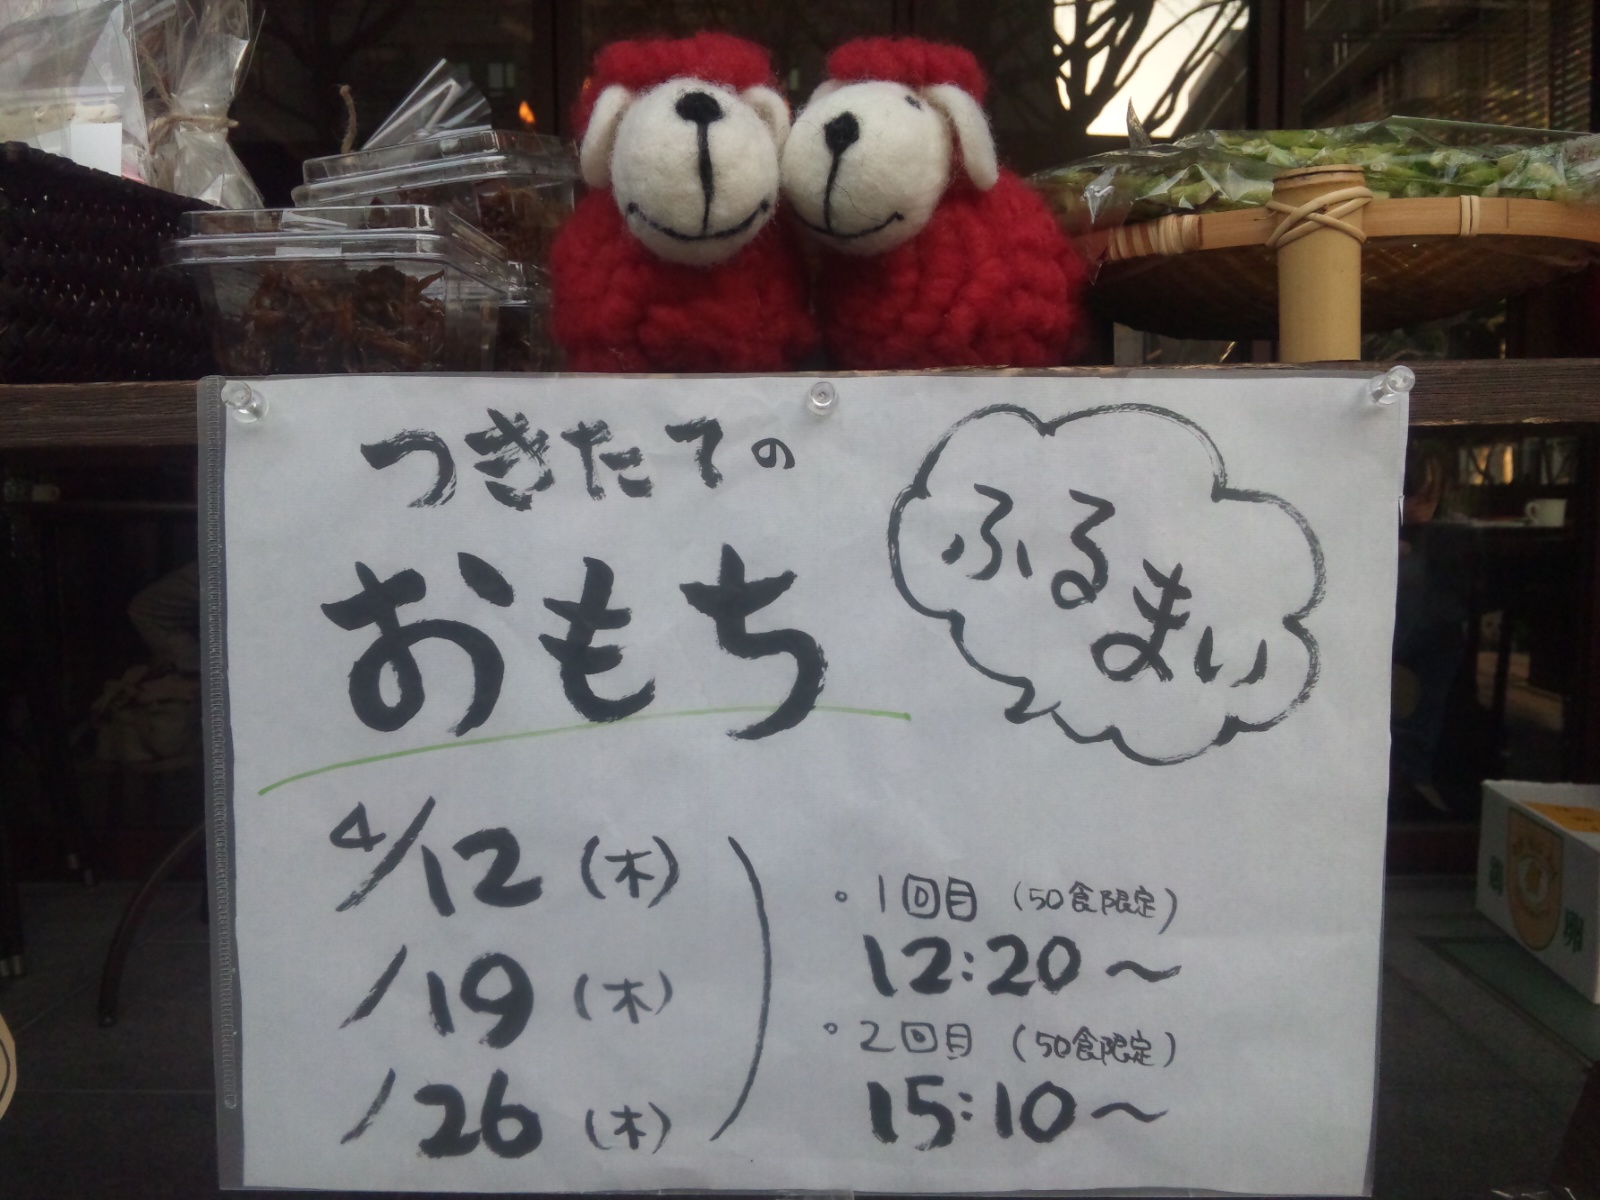 つきたての
おもち
ふるまい
4/12(木)
/19(木)
/26(木)
。1回目(50食限定)
12:20～
。2回目(50食限定)
15:10～